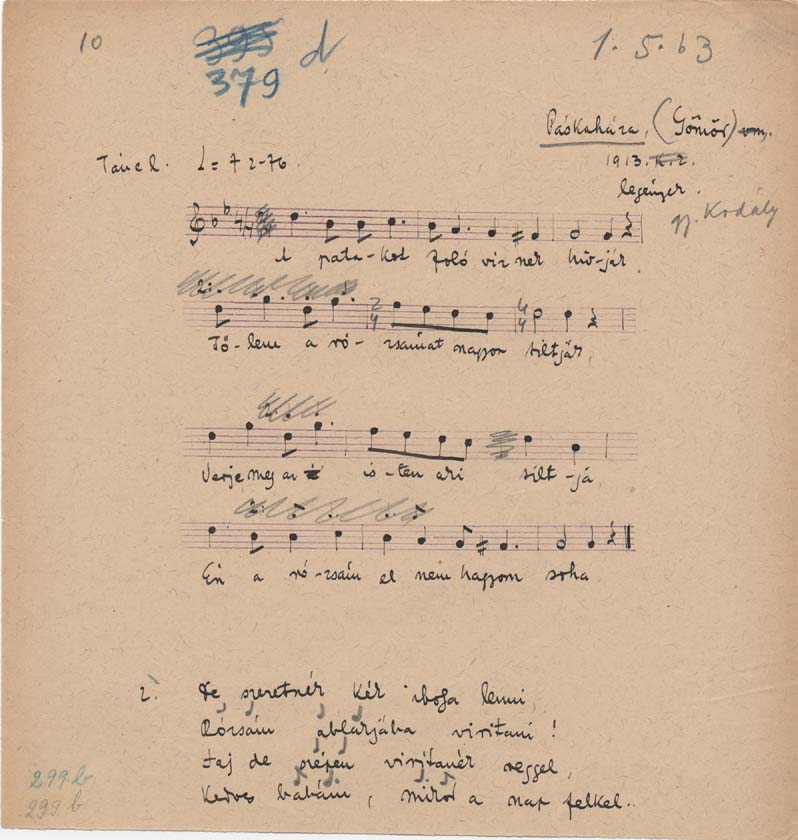 10
395
379
d
1.5.63
Páskaháza, (Gömör) vm.
1913.
legények.
gy. Kodály
Táncl. = 72-76.
A pata-kot foló viz nek hiv-ják
Tő-lem a ró-zsámat nagyon tiltják,
2/4
4/4
Verje meg az is-ten aki tilt-ja
Én a ró-zsám el nem hagyom soha
2. De szeretnék kék iboja lenni,
Rózsám ablakjába viritani!
Haj de szépen viritanék reggel,
Kedves babám, mikor a nap felkel..
299.b
299 b